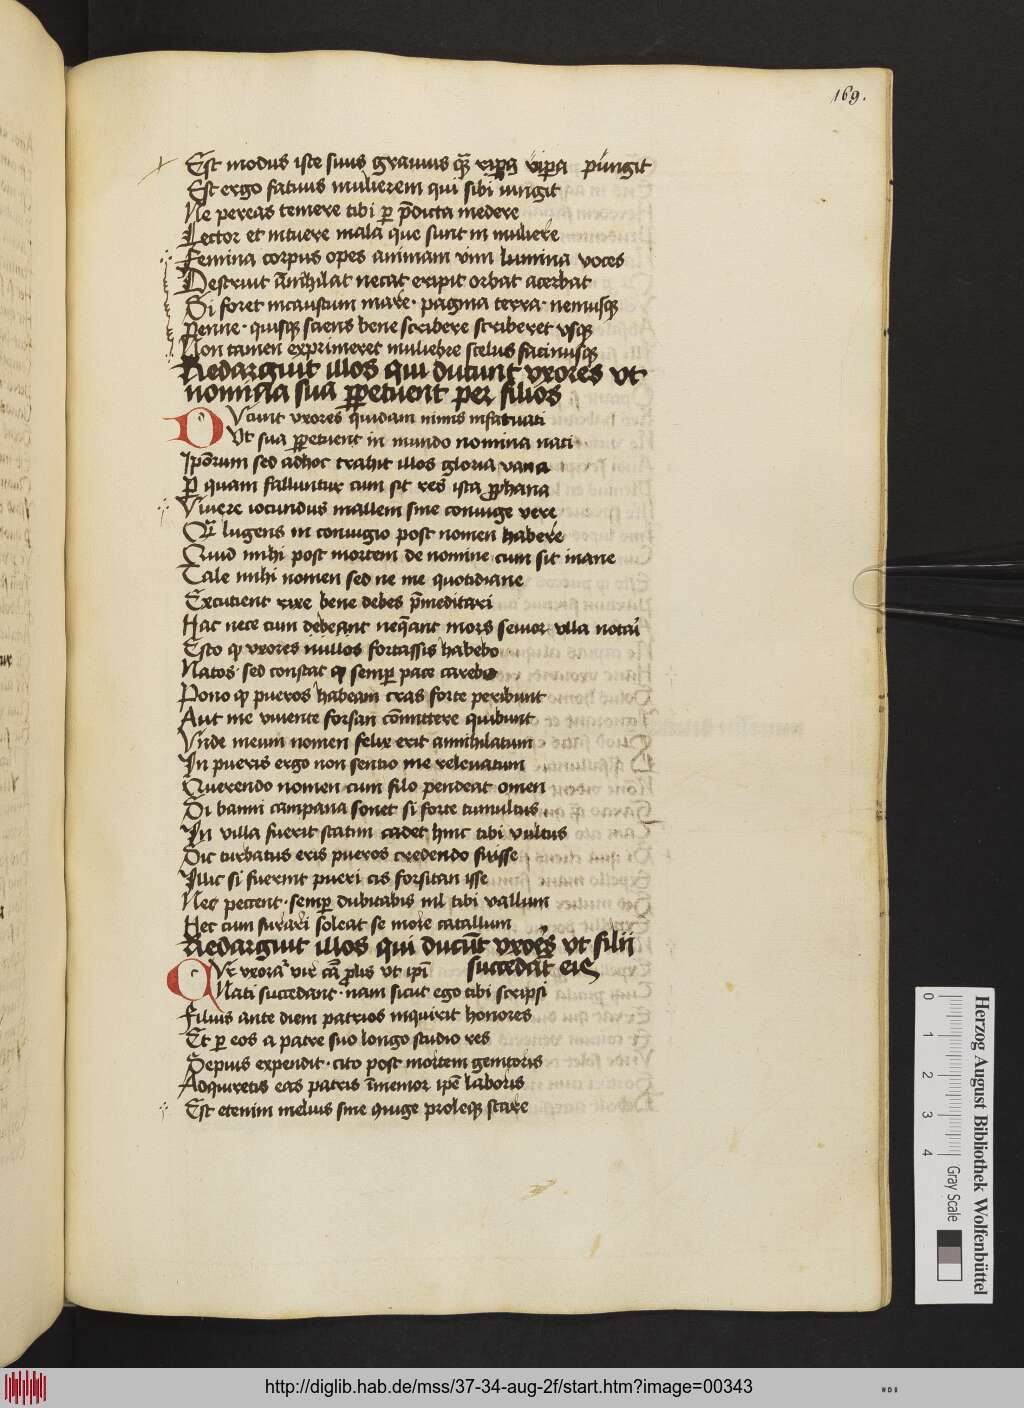 169.
Est modus iste suus grauius qm̄ vipa vipa pungit
Est ergo fatuus mulierem qui sibi iungit
Ne pereas temere tibi ꝑ p̄dicta medere
Lector et intuere mala que sunt in muliere
Femina corpus opes animam vim lumina voces
Destruit ānihilat necat eripit orbat acerbat
Si foret incaustum mare · pagina terra · nemusqꝫ
Penne · quisqꝫ sciens bene scribere scriberet vsqꝫ
Non tamen exprimeret muliebre scelus facinusqꝫ
Redarguit illos qui ducunt vxores vt
nomina sua ꝑpetuent per filios
Dvcunt vxores quidam nimis infatuati
Vt sua ꝑpetuent in mundo nomina nati
Ipōrum sed adhoc trahit illos gloria vana
Per quam falluntur cum sit res ista ꝓphana
Viuere iocundus mallem sine coniuge vere
Qm̄ lugens in coniugio post nomen habere
Quid mihi post mortem de nomine cum sit inane
Tale mihi nomen sed ne me quotidiane
Excutient rixe bene debes p̄meditari
Hac nece cum debeant neq̄ant mors seuior vlla notari
Esto ꝙ vxores nullos fortassis habebo
Natos · sed constat ꝙ semꝑ pace carebo
Pono ꝙ pueros habeam cras forte peribunt
Aut me viuente forsan cōmittere quibunt
Vnde meum nomen felix erit annihilatum
In pueris ergo non sentio me releuatum
Querendo nomen cum filo pendeat omen
Si banni campana sonet si forte tumultus
In villa fuerit statim cadet hinc tibi vultus
Sic turbatus eris pueros credendo fuisse
Illic si fuerint pueri cis forsitan isse
Nec peccent · semꝑ dubitabis nil tibi vallum
Hec cum furari soleat se more catallum
Redarguit illos qui ducūt vxoēs vt filii
succedāt eis
Qvr vxorāt vir cām ꝓlis vt ipī
Nati succedant · nam sicut ego tibi scripsi
Filius ante diem patrios inquirit honores
Et ꝑ eos a patre suo longo studio res
Sepius expendit · cito post mortem genitoris
Adquiretis eas patris īmemor ipē laboris
Est etenim melius sine ꝯiuge proleqꝫ stare
Herzog August Bibliothek Wolfenbüttel
0 1 2 3 4 Gray Scale
http://diglib.hab.de/mss/37-34-aug-2f/start.htm?image=00343